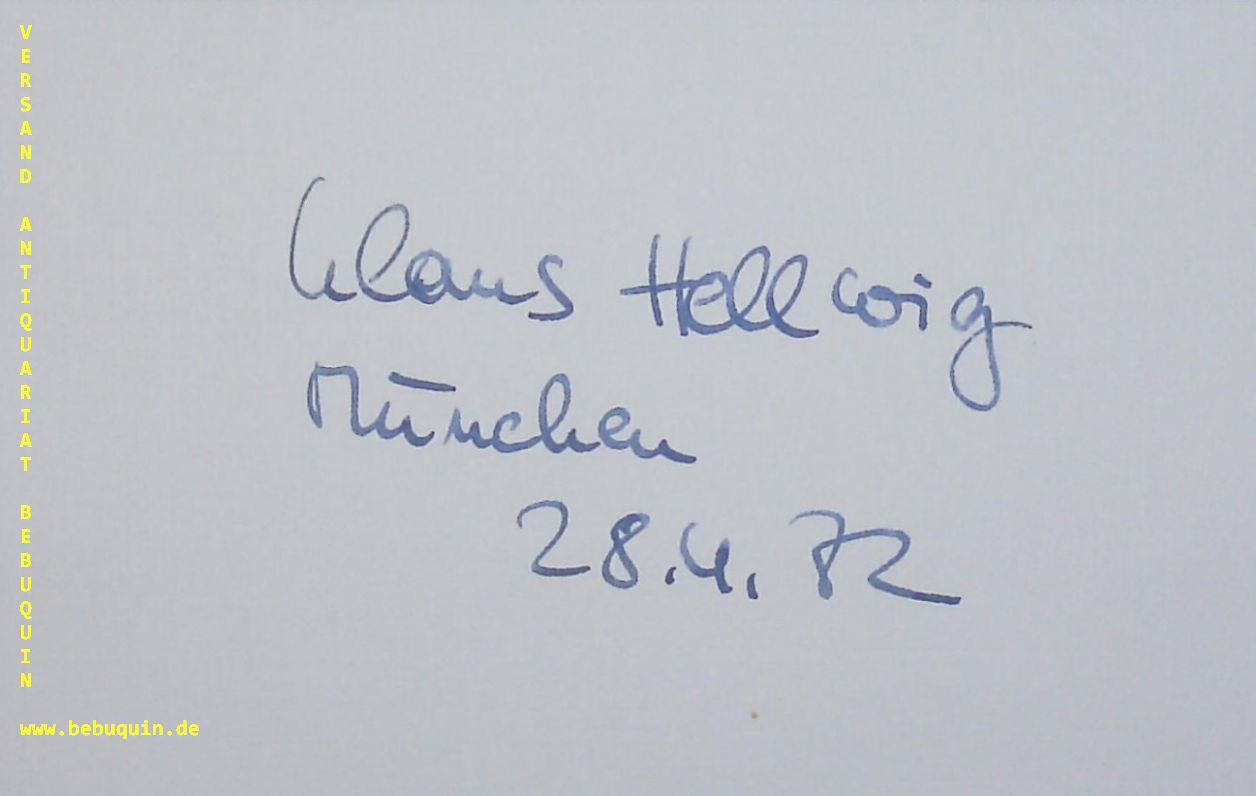 VERSAND ANTIQUARIAT BEBUQUIN
Klaus Hellwig
München
28.4.82
www.bebuquin.de